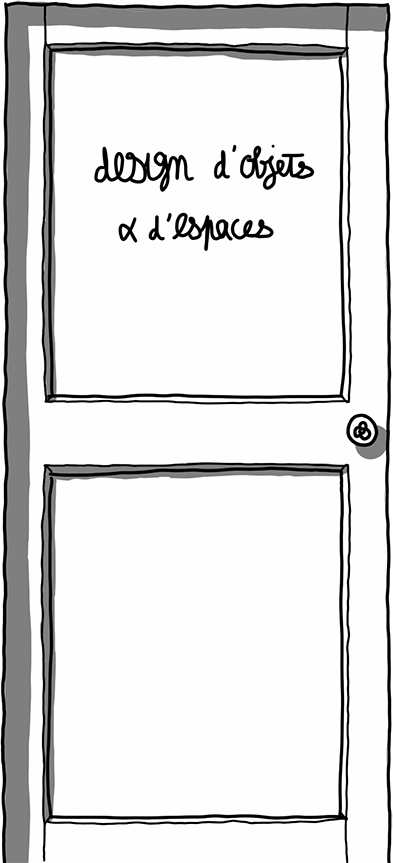 design d'objets
& d'espaces